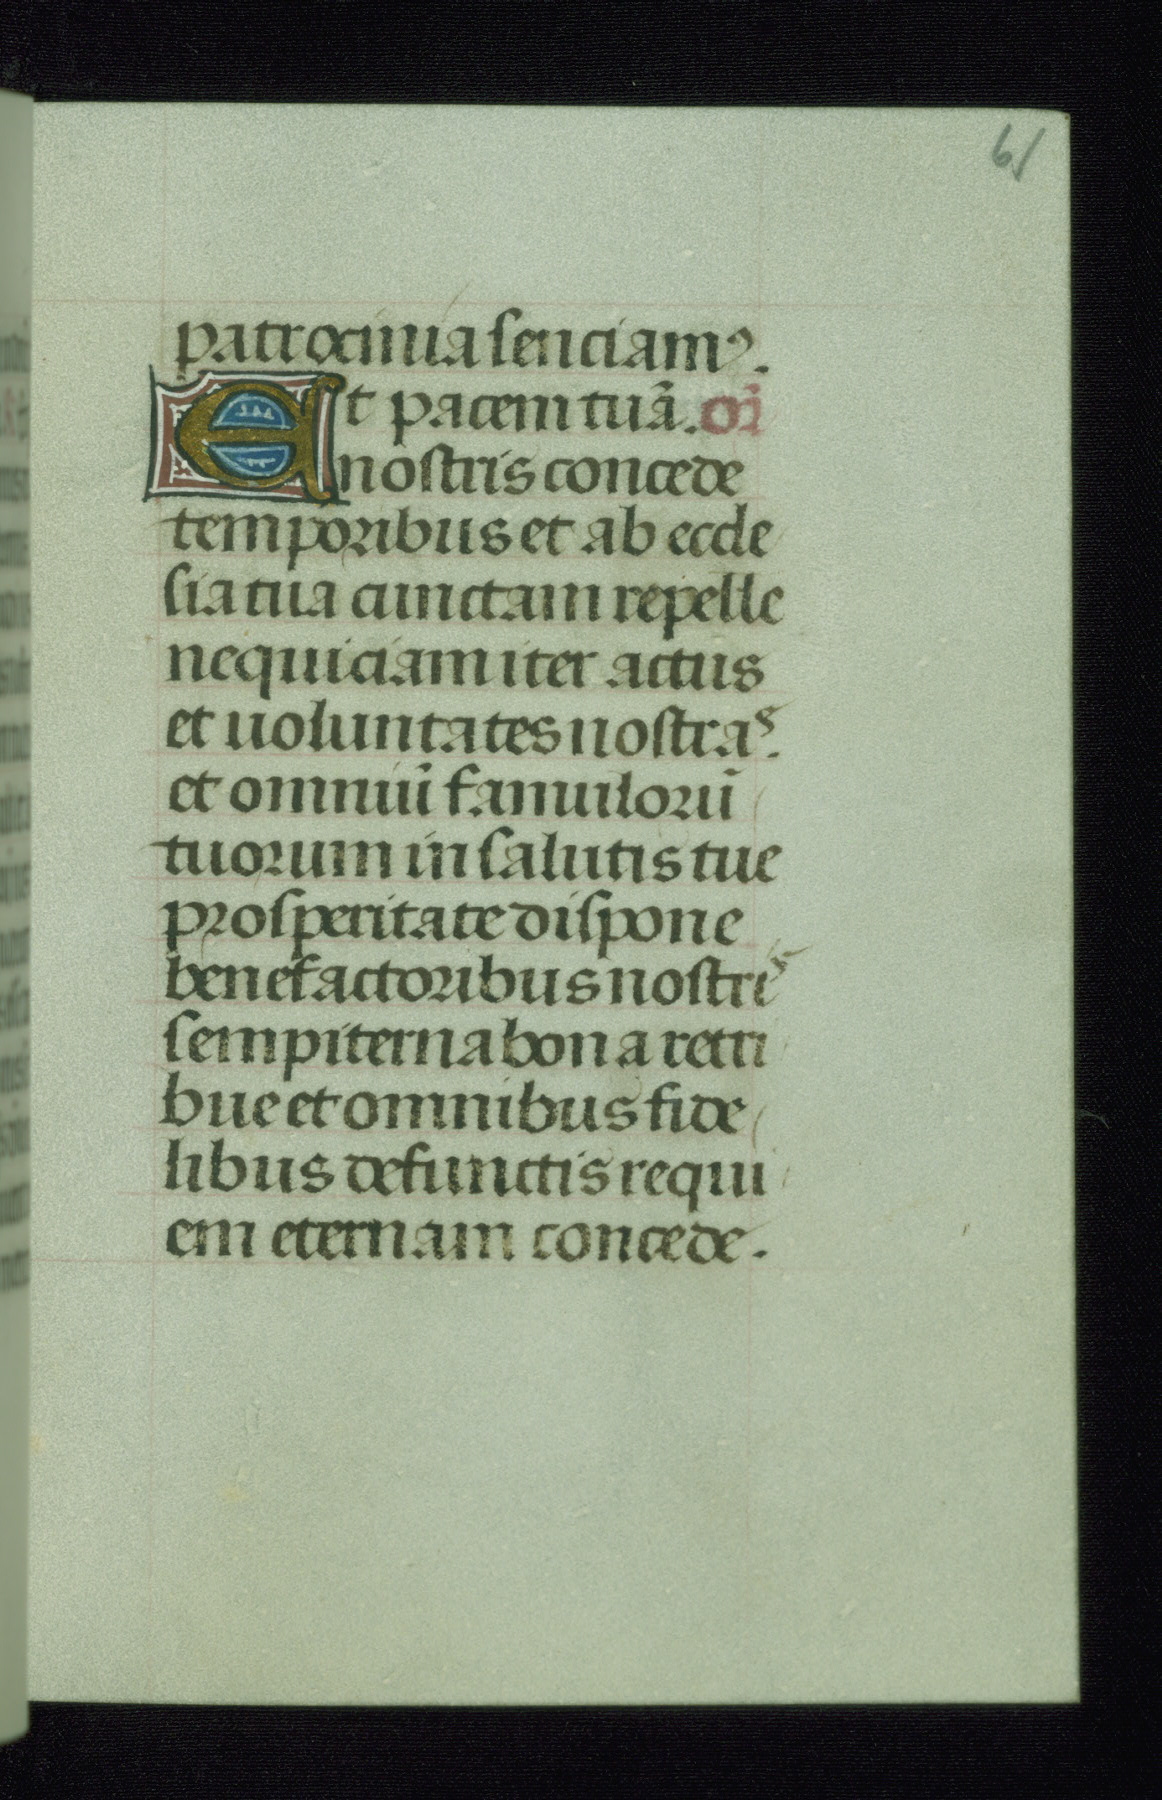 61
patrocinia senciamꝰ.
Et pacem tuā. oı̄
nostris concede
temporibus et ab eccle
sia tua cunctam repelle
nequiciam iter actus
et uoluntates nostras.
et omniū famulorū
tuorum in salutis tue
prosperitate dispone
benefactoribus nostris
sempiterna bona retri
bue et omnibus fide
libus defunctis requi
em eternam concede.